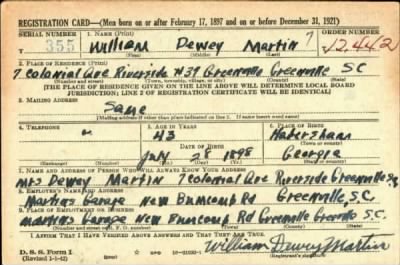 REGISTRATION CARD—(Men born on or after February 17, 1897 and on or before December 31, 1921)
SERIAL NUMBER 1. NAME (Print) ORDER NUMBER
T 355 William Dewey Martin 12,442
(First) (Middle) (Last)
2. PLACE OF RESIDENCE (Print)
7 Colonial Ave Riverside #39 Greenville Greenville S.C
(Number and street) (Town, township, village, or city) (County) (State)
[THE PLACE OF RESIDENCE GIVEN ON THE LINE ABOVE WILL DETERMINE LOCAL BOARD
JURISDICTION; LINE 2 OF REGISTRATION CERTIFICATE WILL BE IDENTICAL]
3. MAILING ADDRESS
Same
[Mailing address if other than place indicated on line 2. If same insert word same]
4. TELEPHONE 5. AGE IN YEARS 6. PLACE OF BIRTH
43 Habersham
DATE OF BIRTH (Town or county)
July 28 1898 Georgia
(Exchange) (Number) (Mo.) (Day) (Yr.) (State or country)
7. NAME AND ADDRESS OF PERSON WHO WILL ALWAYS KNOW YOUR ADDRESS
Mrs Dewey Martin 7 Colonial Ave Riverside Greenville
8. EMPLOYER'S NAME AND ADDRESS
Martins Garage New Buncomb Rd Greenville, S.C.
9. PLACE OF EMPLOYMENT OR BUSINESS
Martins Garage New Buncomb Rd Greenville Greenville S.C.
(Number and street or R. F. D. number) (Town) (County) (State)
I AFFIRM THAT I HAVE VERIFIED ABOVE ANSWERS AND THAT THEY ARE TRUE.
D. S. S. Form 1 William Dewey Martin
(Revised 1-1-42) (over) 16-21630-1 (Registrant's signature)